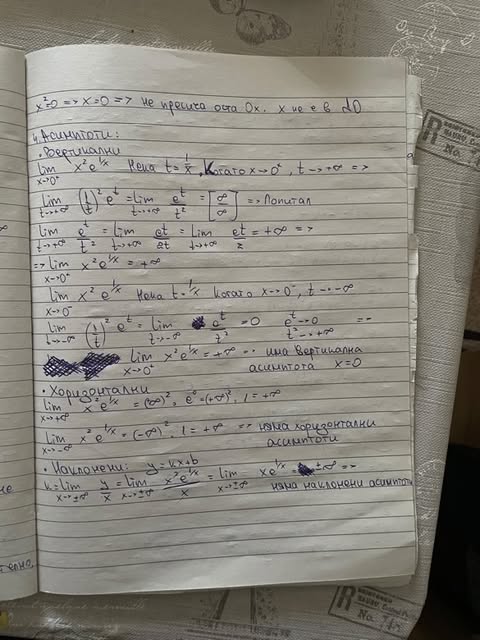 x²=0 => x=0 => Не пресича оста Ox. x не е в ДО
4. Асимптоти:
• Вертикални
lim x→0⁺ x²e^(1/x) Нека t=1/x, Когато x→0⁺, t→+∞ =>
lim t→+∞ (1/t)² e^t = lim t→+∞ e^t/t² = [∞/∞] => Лопитал
lim t→+∞ e^t/t² = lim t→+∞ e^t/2t = lim t→+∞ e^t/2 = +∞ =>
=> lim x→0⁺ x²e^(1/x) = +∞
lim x→0⁻ x² e^(1/x) Нека t=1/x Когато x→0⁻, t→-∞
lim t→-∞ (1/t)² e^t = lim t→-∞ e^t/t² = 0 e^t→0 t²→+∞ =>
lim x→0⁺ x²e^(1/x) = +∞ => има вертикална
асимптота x=0
• Хоризонтални
lim x→+∞ x² e^(1/x) = (+∞)², e⁰ = (+∞)². 1 = +∞
lim x→-∞ x² e^(1/x) = (-∞)². 1 = +∞ => няма хоризонтални
асимптоти
• Наклонени: y=kx+b
k = lim x→±∞ y/x = lim x→±∞ x²e^(1/x)/x = lim x→±∞ xe^(1/x) = ±∞ =>
няма наклонени асимптоти